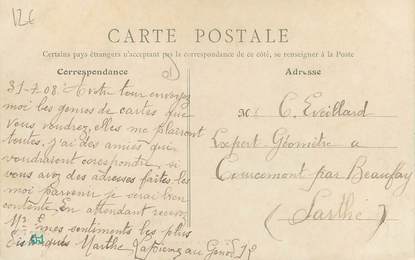 12€
CARTE POSTALE
Certains pays étrangers n'acceptant pas la correspondance de ce côté, se renseigner à la Poste
Correspondance
Adresse
31-7-08. A votre tour envoyez
moi les genres de cartes que
vous voudrez, elles me plairont
toutes. j'ai des amies qui
voudraient corespondre, si
vous avez des adresses faites les
moi parvenir je serai bien
contente. En attendant recevez
Mr E. mes sentiments les plus
distingués Marthe
Mr C. Eveillard
Expert Géomètre a
Courcemont par Beaufay
(Sarthe)